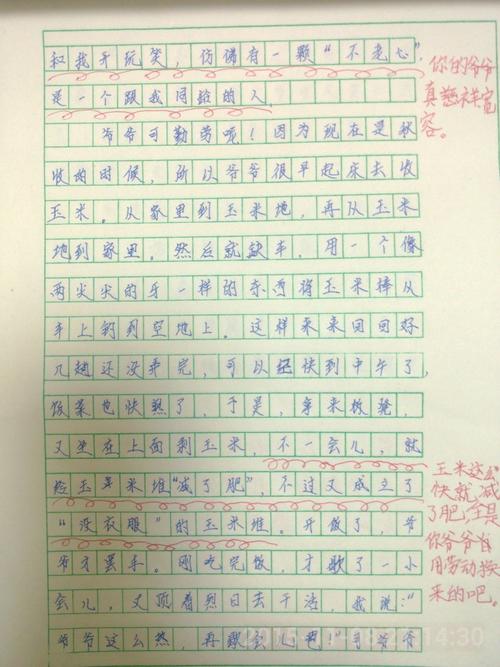 和我开玩笑，仿佛有一颗“不老心”
是一个跟我同龄的人。
爷爷可勤劳呢！因为现在是秋
收的时候，所以爷爷很早起床去收
玉米。从家里到玉米地，再从玉米
地到家里。然后就缺车，用一个像
两尖尖的牙一样的东西将玉米棒从
车上钩到空地上。这样来来回回好
几趟还没弄完，可以经快到中午了，
饭菜也快熟了，于是，拿来板凳，
又坐在上面剥玉米，不一会儿，就
玉米堆“减了肥”，不过又成立了
“没衣服”的玉米堆。开饭了，爷
爷才罢手。刚吃完饭，才歇了一小
会儿，又顶着烈日去干活，我说：“
爷爷这么热，再歇会儿吧！”可爷爷
你的爷爷
真慈祥宽
容。
玉米这么
快就减
了肥，是
你爷爷自
用劳动换
来的吧。